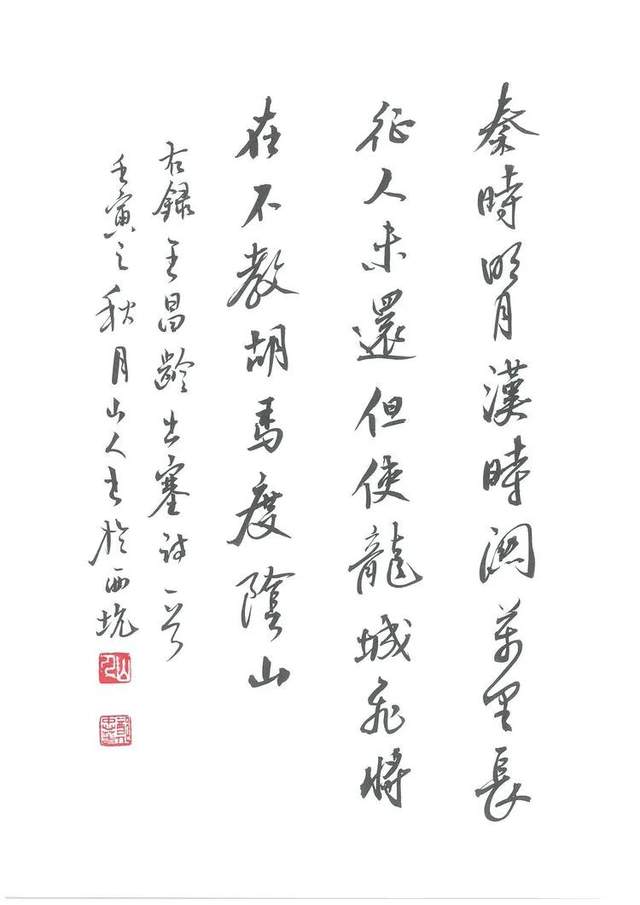 秦時明月漢時關萬里長
征人未還但使龍城飛將
在不教胡馬度陰山
右録王昌齡出塞詩一首
壬寅之秋月山人書於西坑
山人